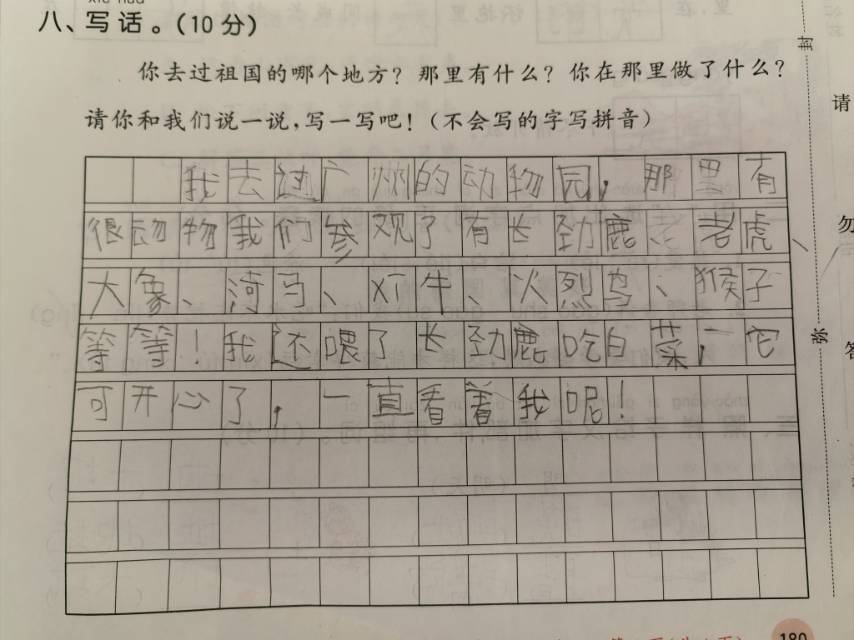 xiě huà
八、写话。(10分)
你去过祖国的哪个地方?那里有什么?你在那里做了什么?
请你和我们说一说,写一写吧!(不会写的字写拼音)
我去过广州的动物园,那里有
很动物我们参观了有长劲鹿、老虎、
大象、河马、犭牛、火烈鸟、猴子
等等!我还喂了长劲鹿吃白菜,它
可开心了,一直看着我呢!
封
弥
请
勿
答
180